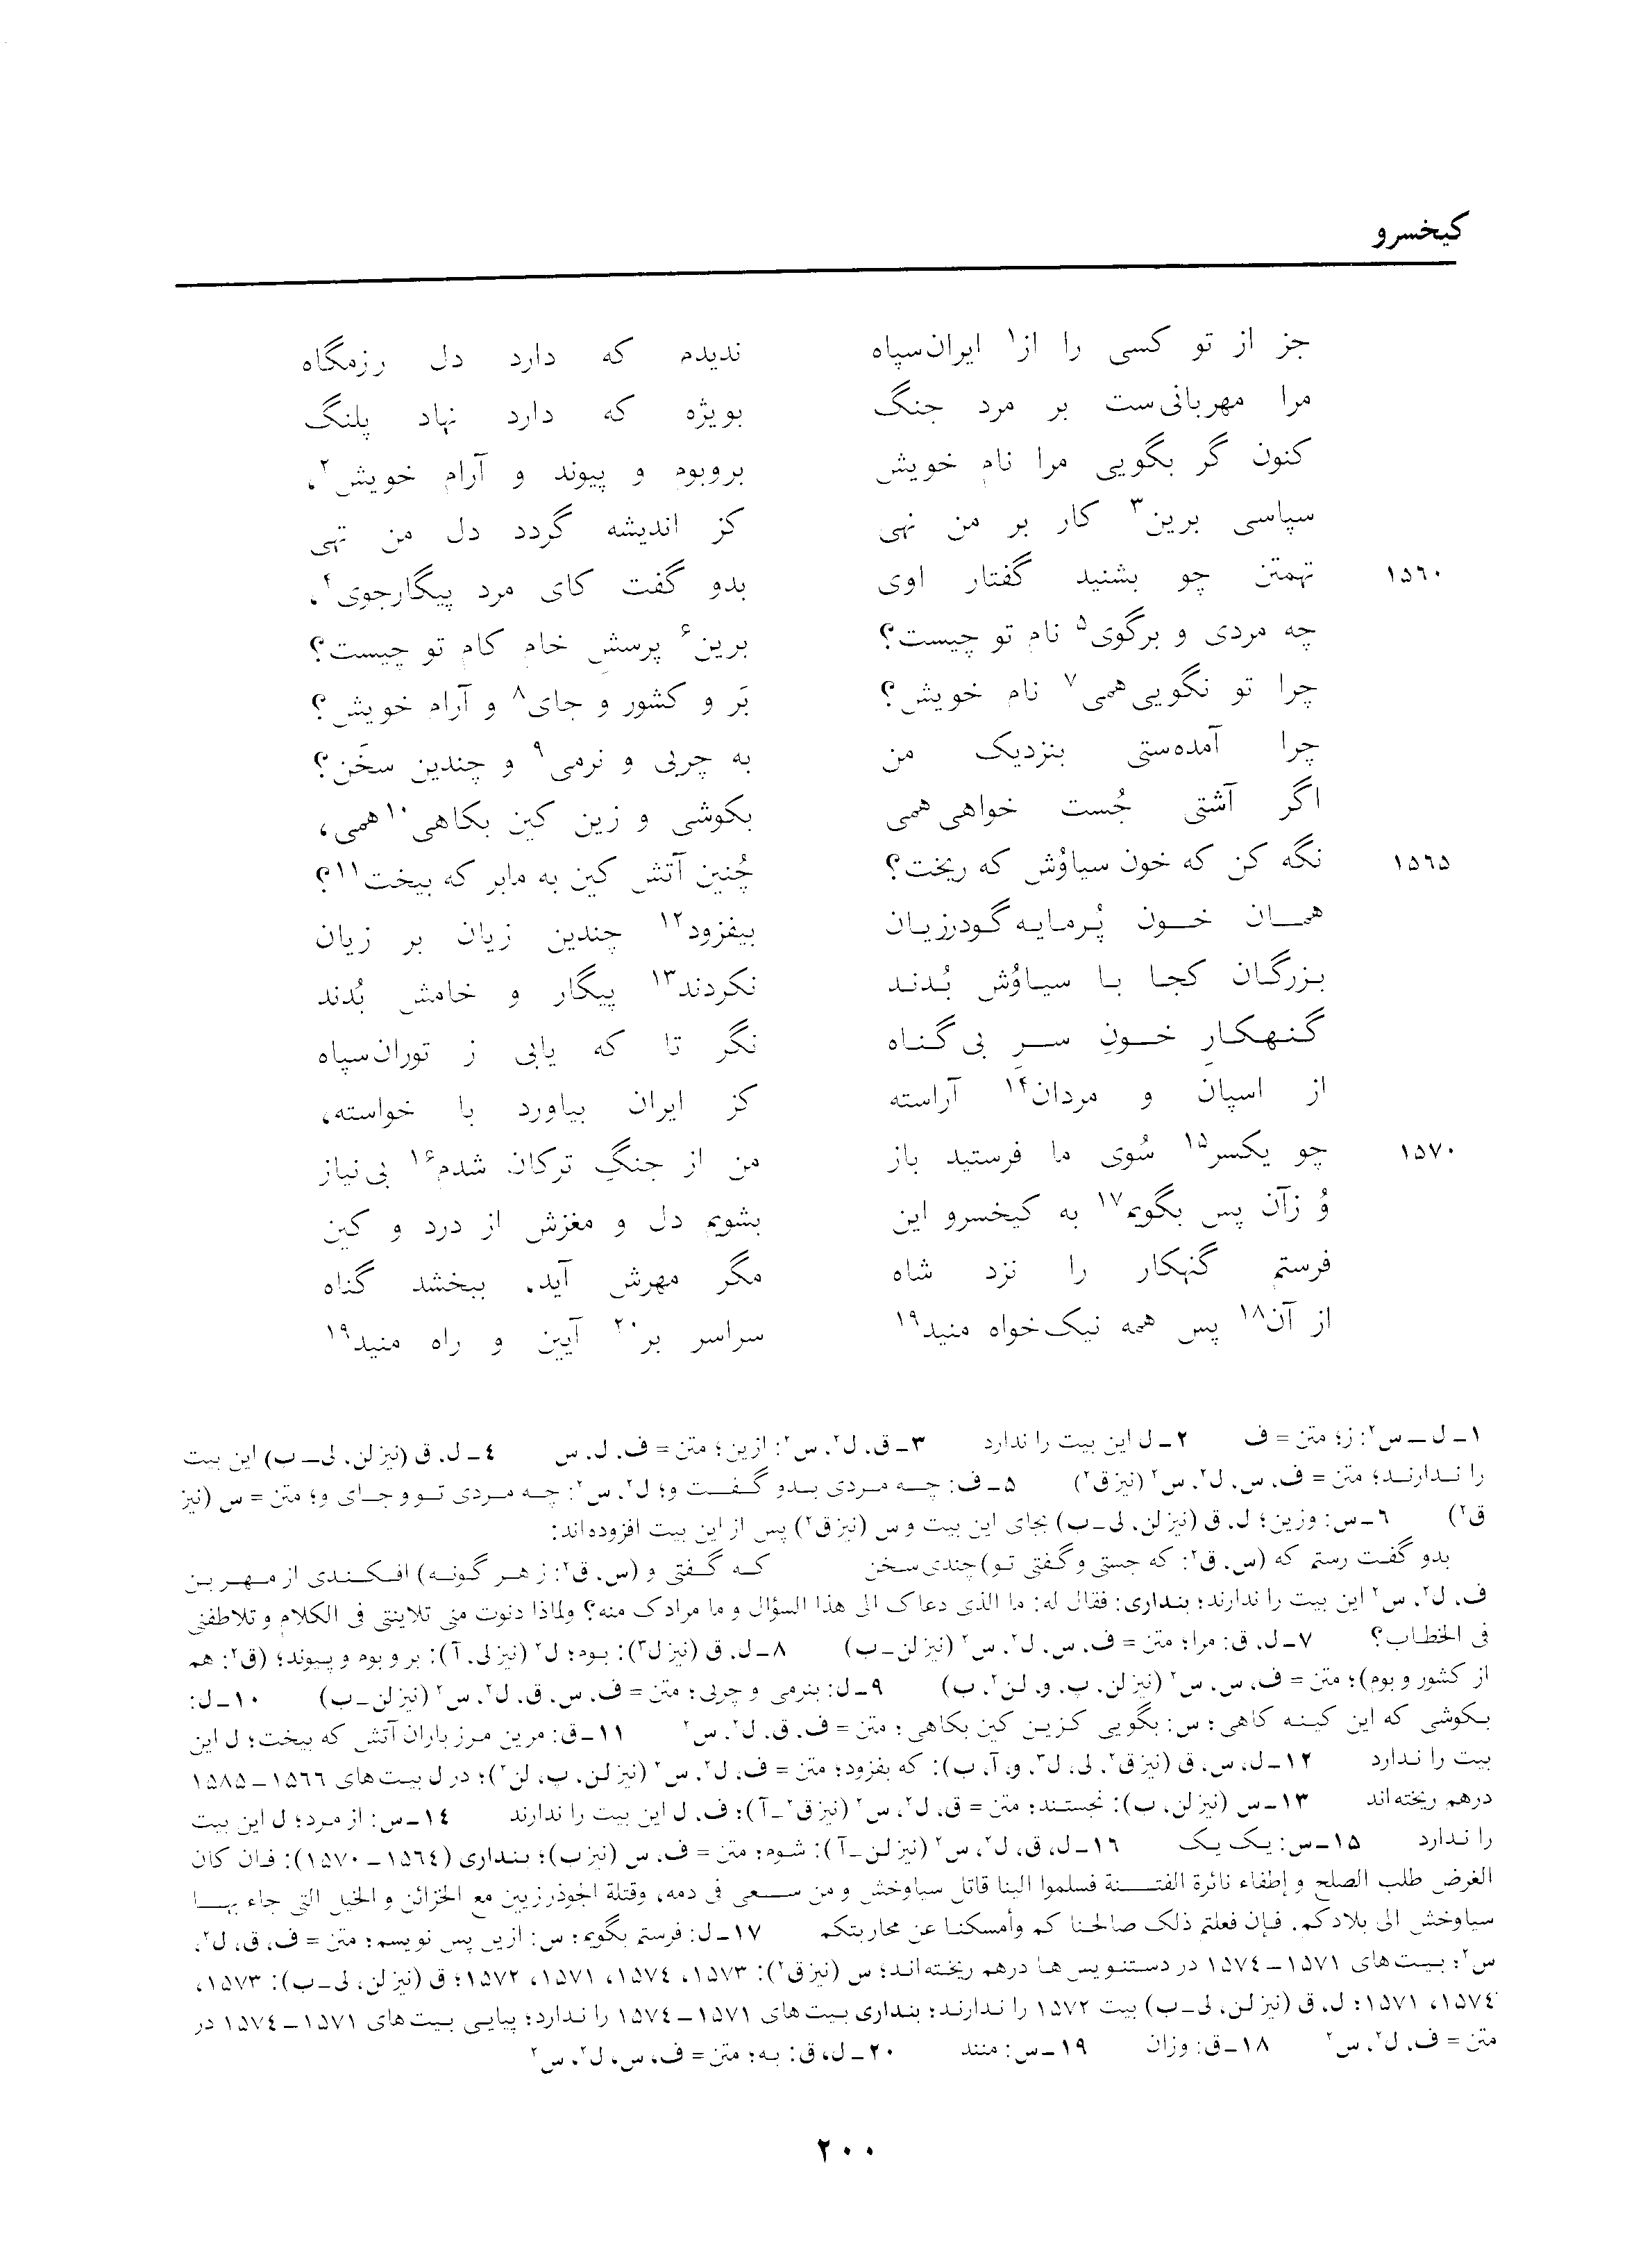 کیخسرو
جز از تو کسی را از۱ ایران‌سپاه ندیدم که دارد دل رزمگاه
مرا مهربانی‌ست بر مرد جنگ بویژه که دارد نهاد پلنگ
کنون گر بگویی مرا نام خویش بروبوم و پیوند و آرام خویش۲،
سپاسی برین۳ کار بر من نهی کز اندیشه گردد دل من تهی
۱۵۶۰ تهمتن چو بشنید گفتار اوی بدو گفت کای مرد پیگارجوی۴،
چه مردی و برگوی۵ نام تو چیست؟ برین۶ پرسشِ خام کام تو چیست؟
چرا تو نگویی همی۷ نام خویش؟ بَر و کشور و جای۸ و آرام خویش؟
چرا آمده‌ستی بنزدیک من به چربی و نرمی۹ و چندین سخَن؟
اگر آشتی جُست خواهی همی بکوشی و زین کین بکاهی۱۰ همی،
۱۵۶۵ نگه کن که خون سیاوُش که ریخت؟ چُنین آتش کین به مابر که بیخت۱۱؟
همان خون پُرمایه گودرزیان بیفزود۱۲ چندین زیان بر زیان
بزرگان کجا با سیاوُش بُدند نکردند۱۳ پیگار و خامش بُدند
گنهکارِ خونِ سرِ بی گناه نگر تا که یابی ز توران‌سپاه
از اسپان و مردان۱۴ آراسته کز ایران بیاورد با خواسته،
۱۵۷۰ چو یکسر۱۵ سُوی ما فرستید باز من از جنگِ ترکان شدم۱۶ بی‌نیاز
وُ زآن پس بگویم۱۷ به کیخسرو این بشویم دل و مغزش از درد و کین
فرستم گنهکار را نزد شاه مگر مهرش آید، ببخشد گناه
از آن۱۸ پس همه نیک‌خواه منید۱۹ سراسر بر۲۰ آیین و راه منید۱۹
۱ـ ل ـ س۲: ز؛ متن = ف ۲ـ ل این بیت را ندارد ۳ـ ق، ل۲، س۲: ازین؛ متن = ف، ل، س ۴ـ ل، ق (نیز لن، لی ـ ب) این بیت
را ندارند؛ متن = ف، س، ل۲، س۲ (نیز ق۲) ۵ـ ف: چه مردی بدو گفت و؛ ل۲، س۲: چه مردی تو و جای و؛ متن = س (نیز
ق۲) ۶ـ س: وزین؛ ل، ق (نیز لن، لی ـ ب) بجای این بیت و س (نیز ق۲) پس از این بیت افزوده‌اند:
بدو گفت رستم که (س، ق۲: که جستی و گفتی تو) چندی سخن که گفتی و (س، ق۲: ز هر گونه) افکندی از مهر بن
ف، ل۲، س۲ این بیت را ندارند؛ بنداری: فقال له: ما الذی دعاک الی هذا السؤال و ما مرادک منه؟ ولماذا دنوت منی تلاینتی فی الکلام و تلاطفنی
فی الخطاب؟ ۷ـ ل، ق: مرا؛ متن = ف، س، ل۲، س۲ (نیز لن ـ ب) ۸ـ ل، ق (نیز ل۳): بوم؛ ل۲ (نیز لی، آ): بر و بوم و پیوند؛ (ق۲: هم
از کشور و بوم)؛ متن = ف، س، س۲ (نیز لن، پ، و، لن۲، ب) ۹ـ ل: بنرمی و چربی؛ متن = ف، س، ق، ل۲، س۲ (نیز لن ـ ب) ۱۰ـ ل:
بکوشی که این کینه کاهی؛ س: بگویی کزین کین بکاهی؛ متن = ف، ق، ل۲، س۲ ۱۱ـ ق: مرین مرز باران آتش که بیخت؛ ل این
بیت را ندارد ۱۲ـ ل، س، ق (نیز ق۲، لی، ل۳، و، آ، ب): که بفزود؛ متن = ف، ل۲، س۲ (نیز لن، پ، لن۲)؛ در ل بیت‌های ۱۵۶۶ ـ ۱۵۸۵
درهم ریخته‌اند ۱۳ـ س (نیز لن، ب): نجستند؛ متن = ق، ل۲، س۲ (نیز ق۲ ـ آ)؛ ف، ل این بیت را ندارند ۱۴ـ س: از مرد؛ ل این بیت
را ندارد ۱۵ـ س: یک یک ۱۶ـ ل، ق، ل۲، س۲ (نیز لن ـ آ): شوم؛ متن = ف، س (نیز ب)؛ بنداری (۱۵۶۴ ـ ۱۵۷۰): فان کان
الغرض طلب الصلح و إطفاء نائرة الفتنة فسلموا الینا قاتل سیاوخش و من سعی فی دمه، وقتلة الجوذرزیین مع الخزائن و الخیل التی جاء بها
سیاوخش الی بلادکم. فإن فعلتم ذلک صالحنا کم وأمسکنا عن محاربتکم ۱۷ـ ل: فرستم بگویم؛ س: ازین پس نویسم؛ متن = ف، ق، ل۲،
س۲؛ بیت‌های ۱۵۷۱ ـ ۱۵۷۴ در دستنویس‌ها درهم ریخته‌اند؛ س (نیز ق۲): ۱۵۷۳، ۱۵۷۴، ۱۵۷۱، ۱۵۷۲؛ ق (نیز لن، لی ـ ب): ۱۵۷۳،
۱۵۷۴، ۱۵۷۱؛ ل، ق (نیز لن، لی ـ ب) بیت ۱۵۷۲ را ندارند؛ بنداری بیت‌های ۱۵۷۱ ـ ۱۵۷۴ را ندارد؛ پیاپی بیت‌های ۱۵۷۱ ـ ۱۵۷۴ در
متن = ف، ل۲، س۲ ۱۸ـ ق: وزان ۱۹ـ س: منند ۲۰ـ ل، ق: به؛ متن = ف، س، ل۲، س۲
۲۰۰